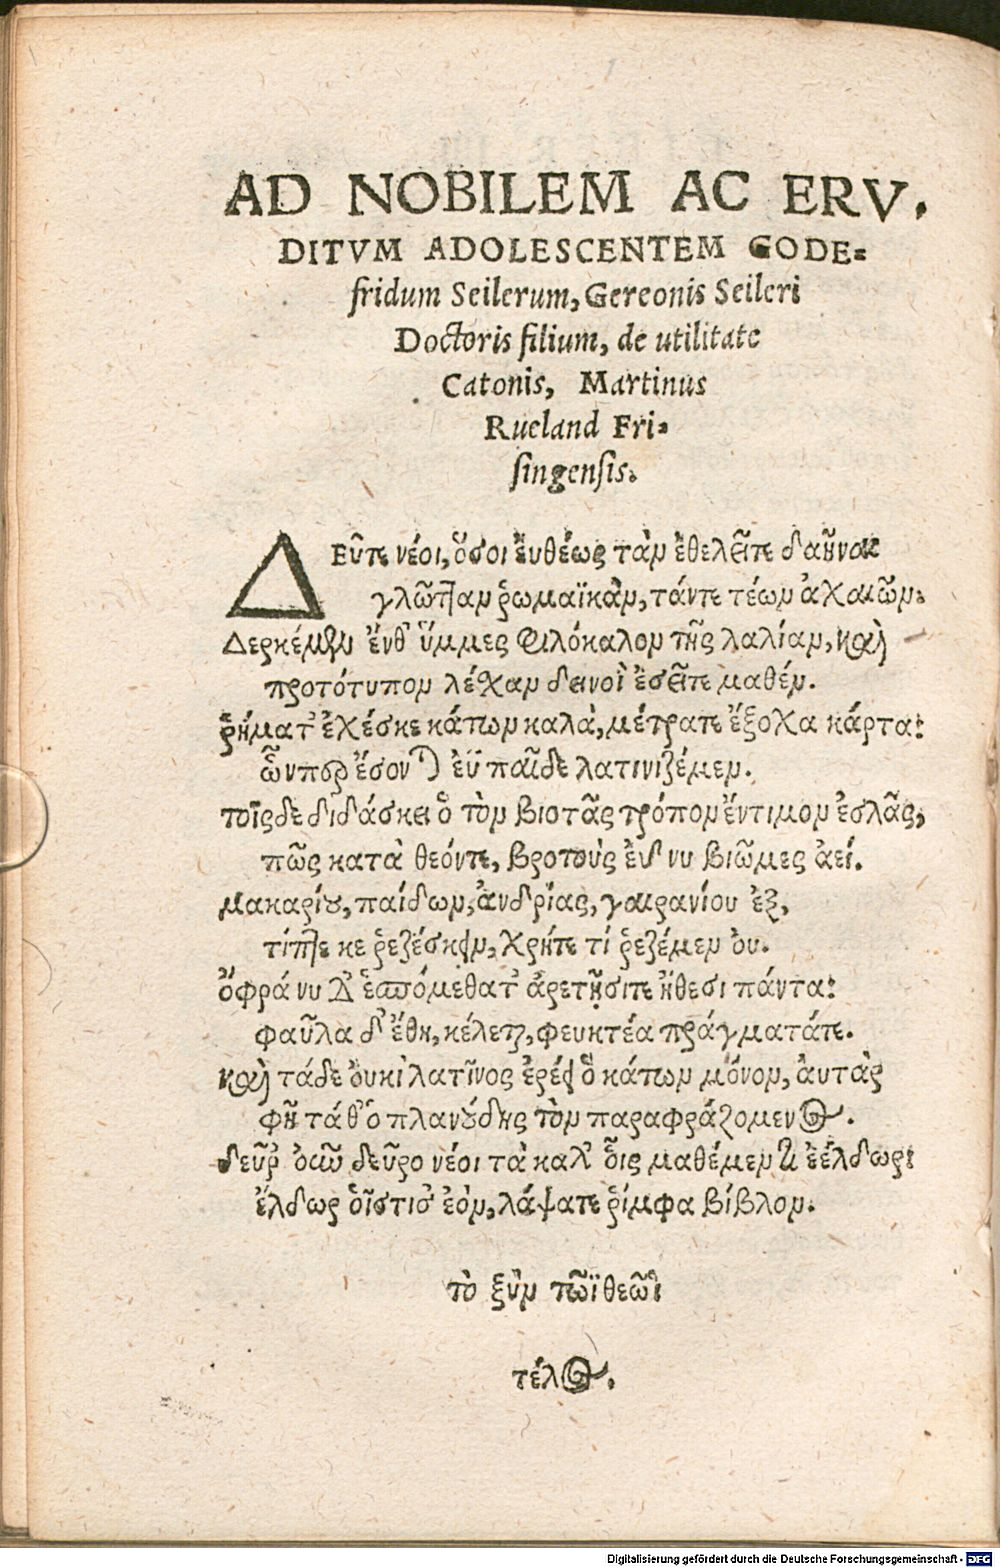 AD NOBILEM AC ERV,
DITVM ADOLESCENTEM GODE=
fridum Seilerum, Gereonis Seileri
Doctoris filium, de utilitate
Catonis, Martinus
Rueland Fri=
singensis.
ΔΕῦτε νέοι, ὅσοι ἐυθέως τὰν ἐθελεῖτε δαῆναι
γλῶτταν ῥωμαϊκὰν, τάντε τέων ἀχαιῶν.
Δερκέμεν ἔνθ' ὕμμες φιλόκαλον τῆς λαλίαν, καὶ
προτότυπον λέχαν δεινοὶ ἐσεῖτε μαθέν.
ῥήματ' ἐχέσκε κάτων καλὰ, μέτρατε ἔξοχα κάρτα:
ὧνπερ ἔσονται ἐῢ παῖδε λατινιζέμεν.
τοῖςδε διδάσκει ὁ τὸν βιοτᾶς τρόπον ἔντιμον ἐσλᾶς,
πῶς κατὰ θεόντε, βροτοὺς ἐιδ νυ βιῶμες ἀεί.
μακαρίου, παίδων, ἀνδρίας, γαιρανίου ἐξ,
τίπτε κε ῥεζέσκειν, χρήτε τί ῥεζέμεν ὀυ.
ὄφρά νυ δ' ἑσπόμεθατ' ἀρετῇσιτε ἤθεσι πάντα:
φαῦλα δ' ἔθη, κέλεται, φευκτέα πράγματάτε.
καὶ τάδε ὀυκὶ λατῖνος ἐρέει ὁ κάτων μόνον, ἀυτὰρ
φῆ τάθ' ὁ πλανούδης τὸν παραφράζομενος.
δεῦρ' ὁσῶ δεῦρο νέοι τὰ καλ' οἷς μαθέμεν ἐέλδωρ:
ἔλδωρ οἷστισ' ἐὸν, λάψατε ῥίμφα βίβλον.
τὸ ξὺν τῶϊ θεῶι
τέλος.